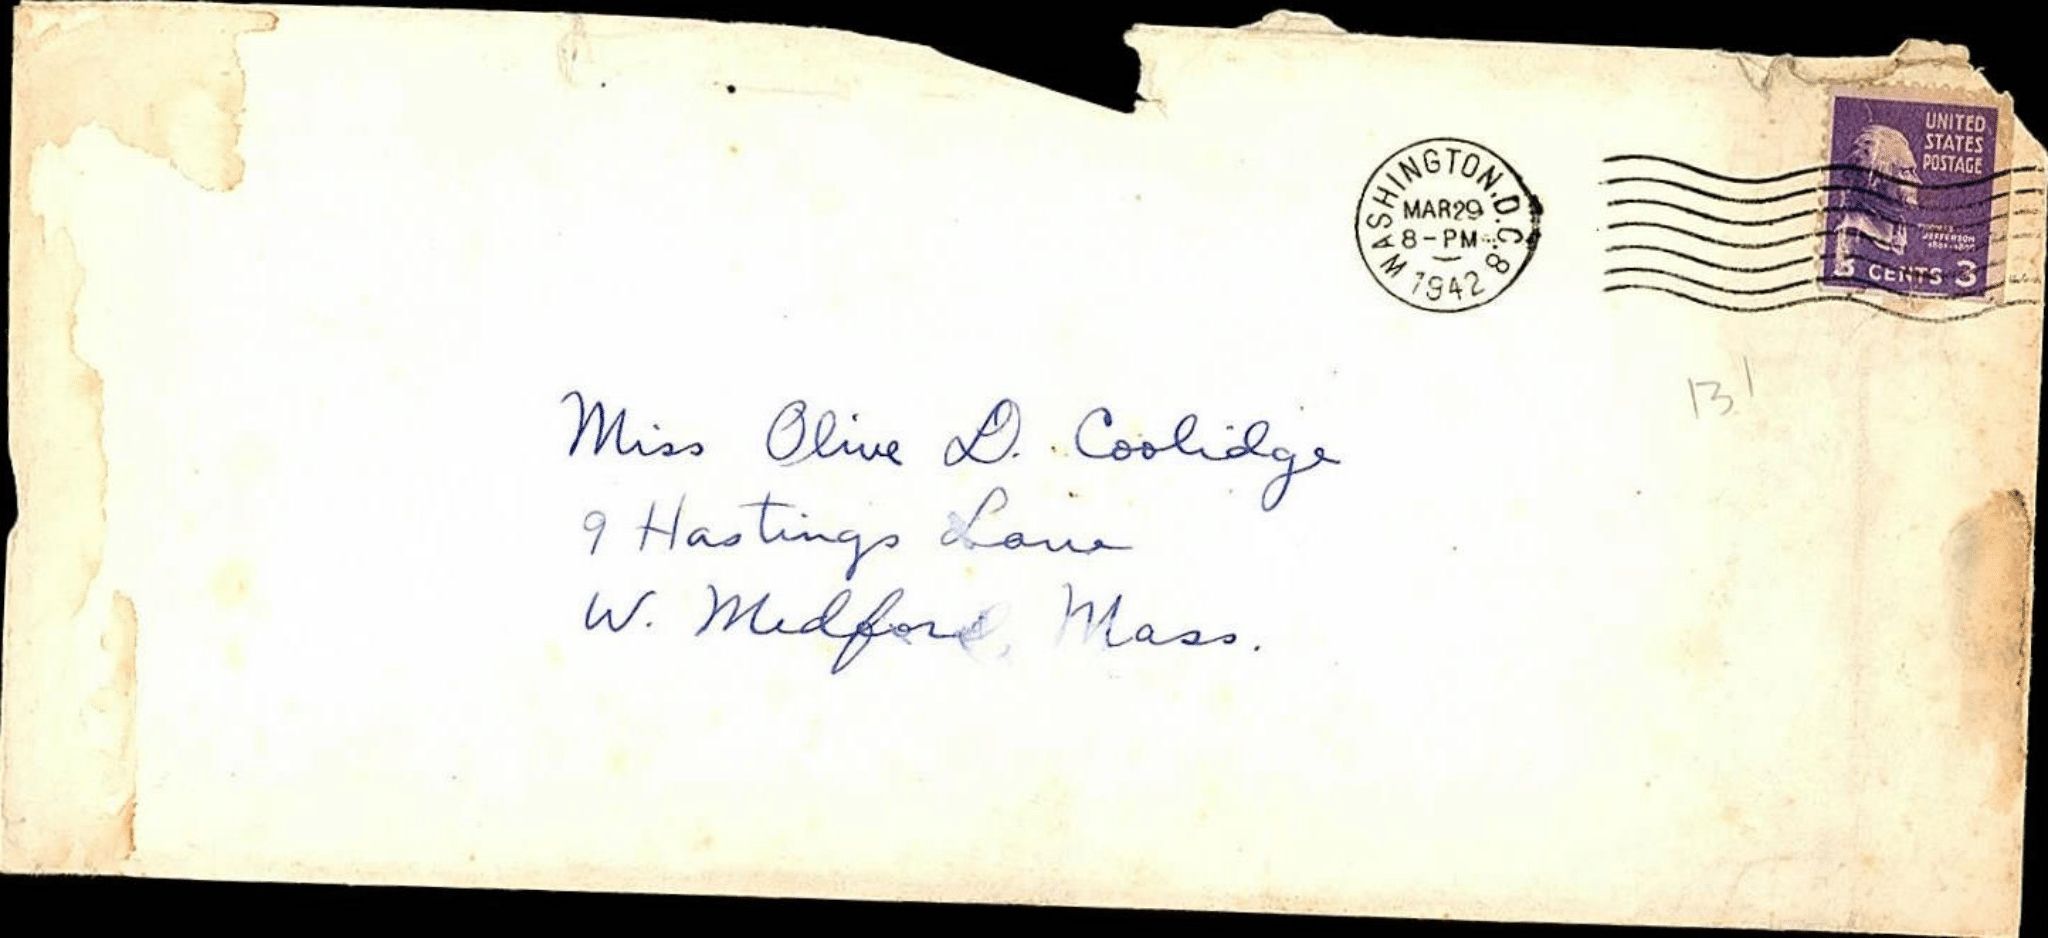 WASHINGTON, D.C. 8
MAR 29
8-PM
1942
UNITED
STATES
POSTAGE
JEFFERSON
3 CENTS 3
13 1
Miss Olive D. Coolidge
9 Hastings Lane
W. Medford, Mass.